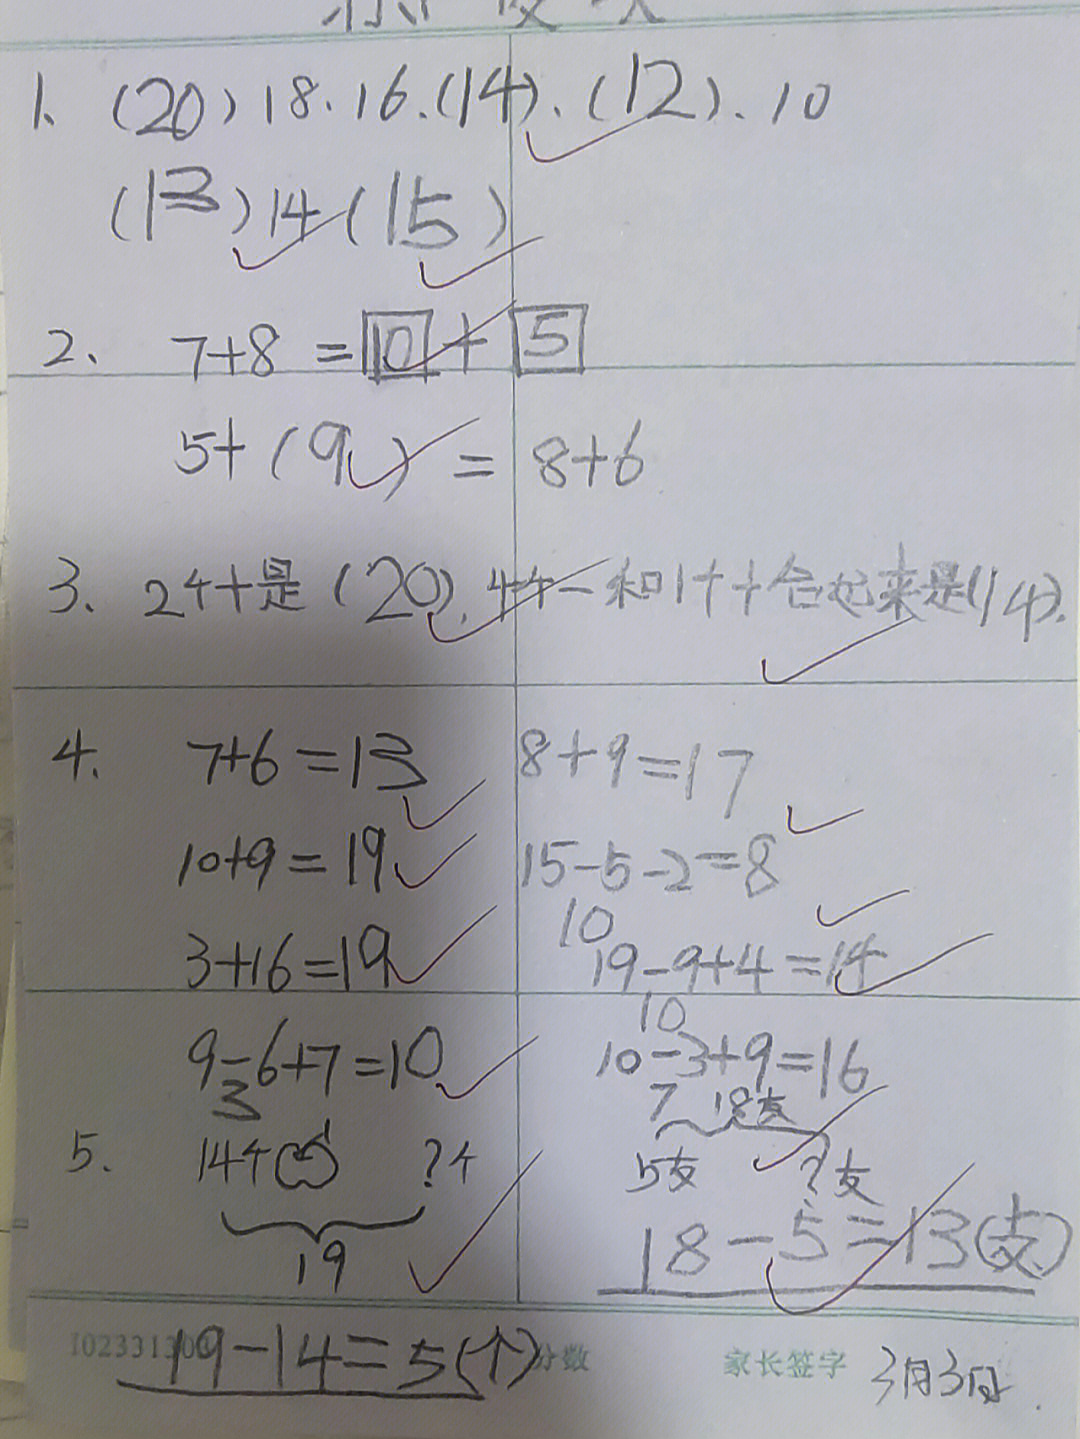 1. (20) 18. 16. (14). (12). 10
(13) 14 (15)
2、 7+8 = 10 + 5
5+(9) = 8+6
3、 2个十是(20). 4个一和1个十合起来是(14).
4. 7+6=13 8+9=17
10+9=19 15-5-2=8
10
3+16=19 19-9+4=14
10
9-6+7=10 10-3+9=16
3 7 18支
5. 14个 ?个 5支 ?支
19 18-5=13(支)
19-14=5(个)
分数 家长签字 3月3日